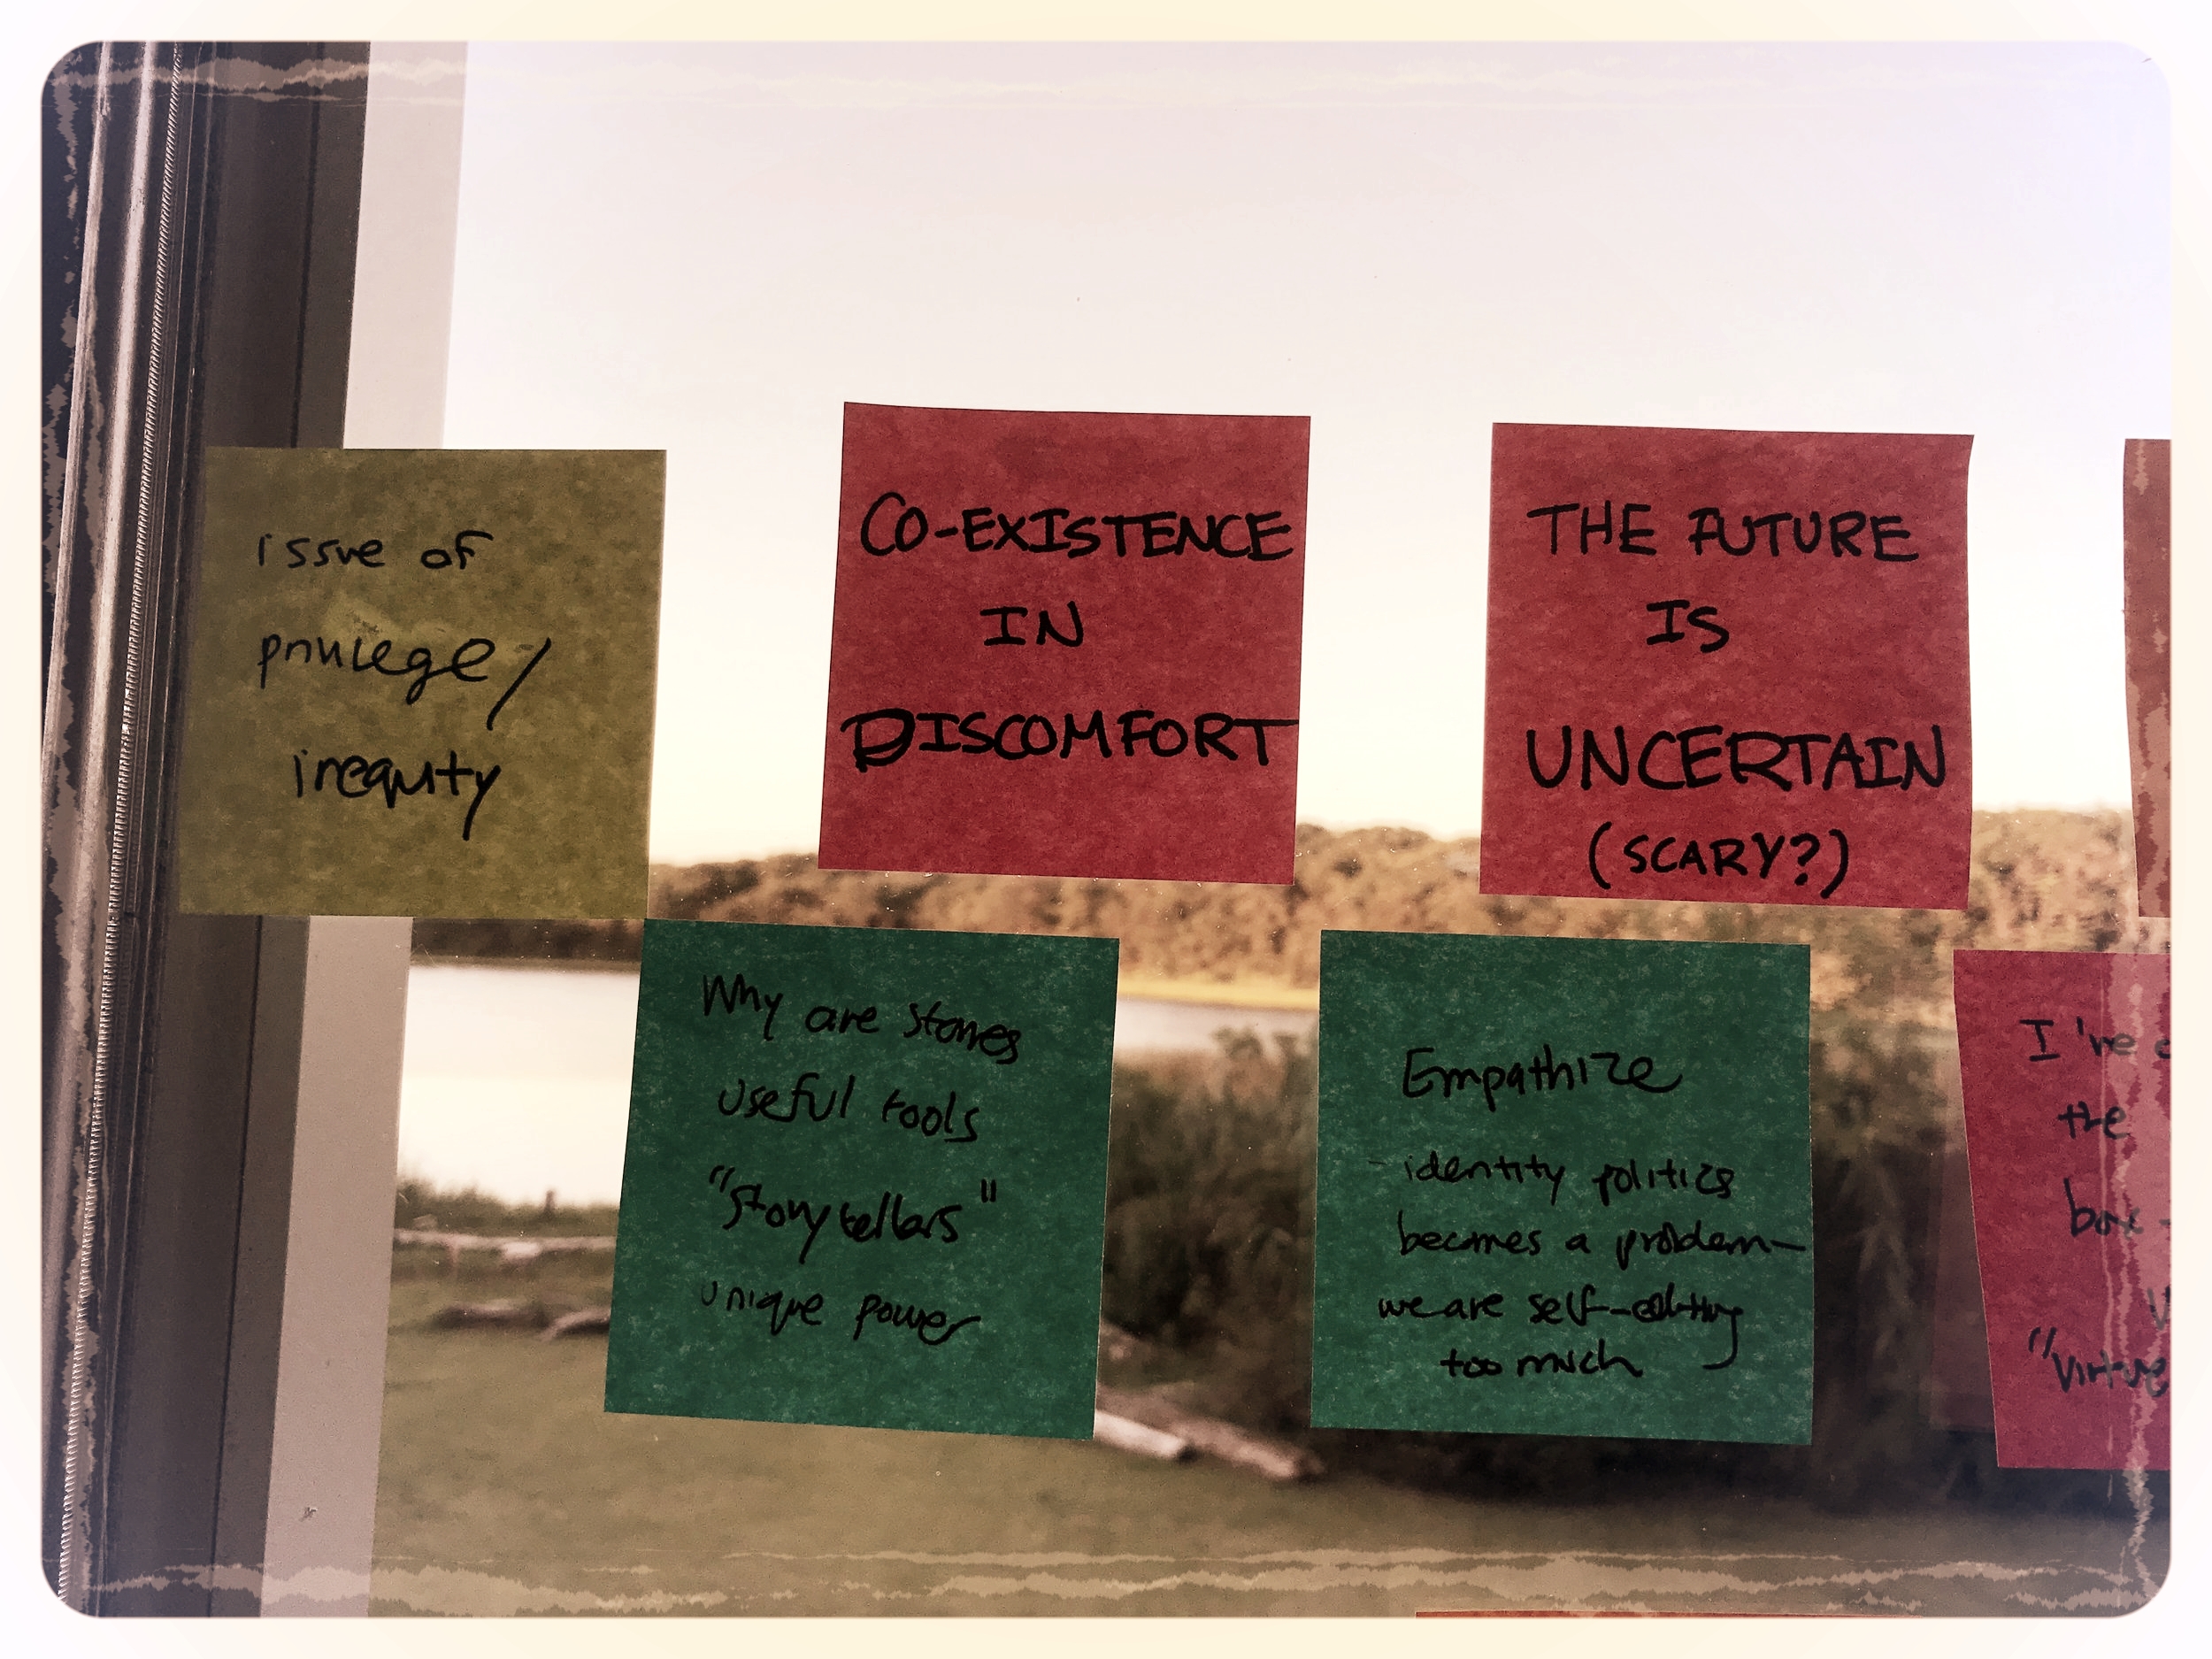 issue of
privilege/
inequity
CO-EXISTENCE
IN
DISCOMFORT
THE FUTURE
IS
UNCERTAIN
(SCARY?)
Why are stories
useful tools
"Storytellers"
unique power
Empathize
- identity politics
becomes a problem-
we are self-editing
too much
I've
the
"Virtue